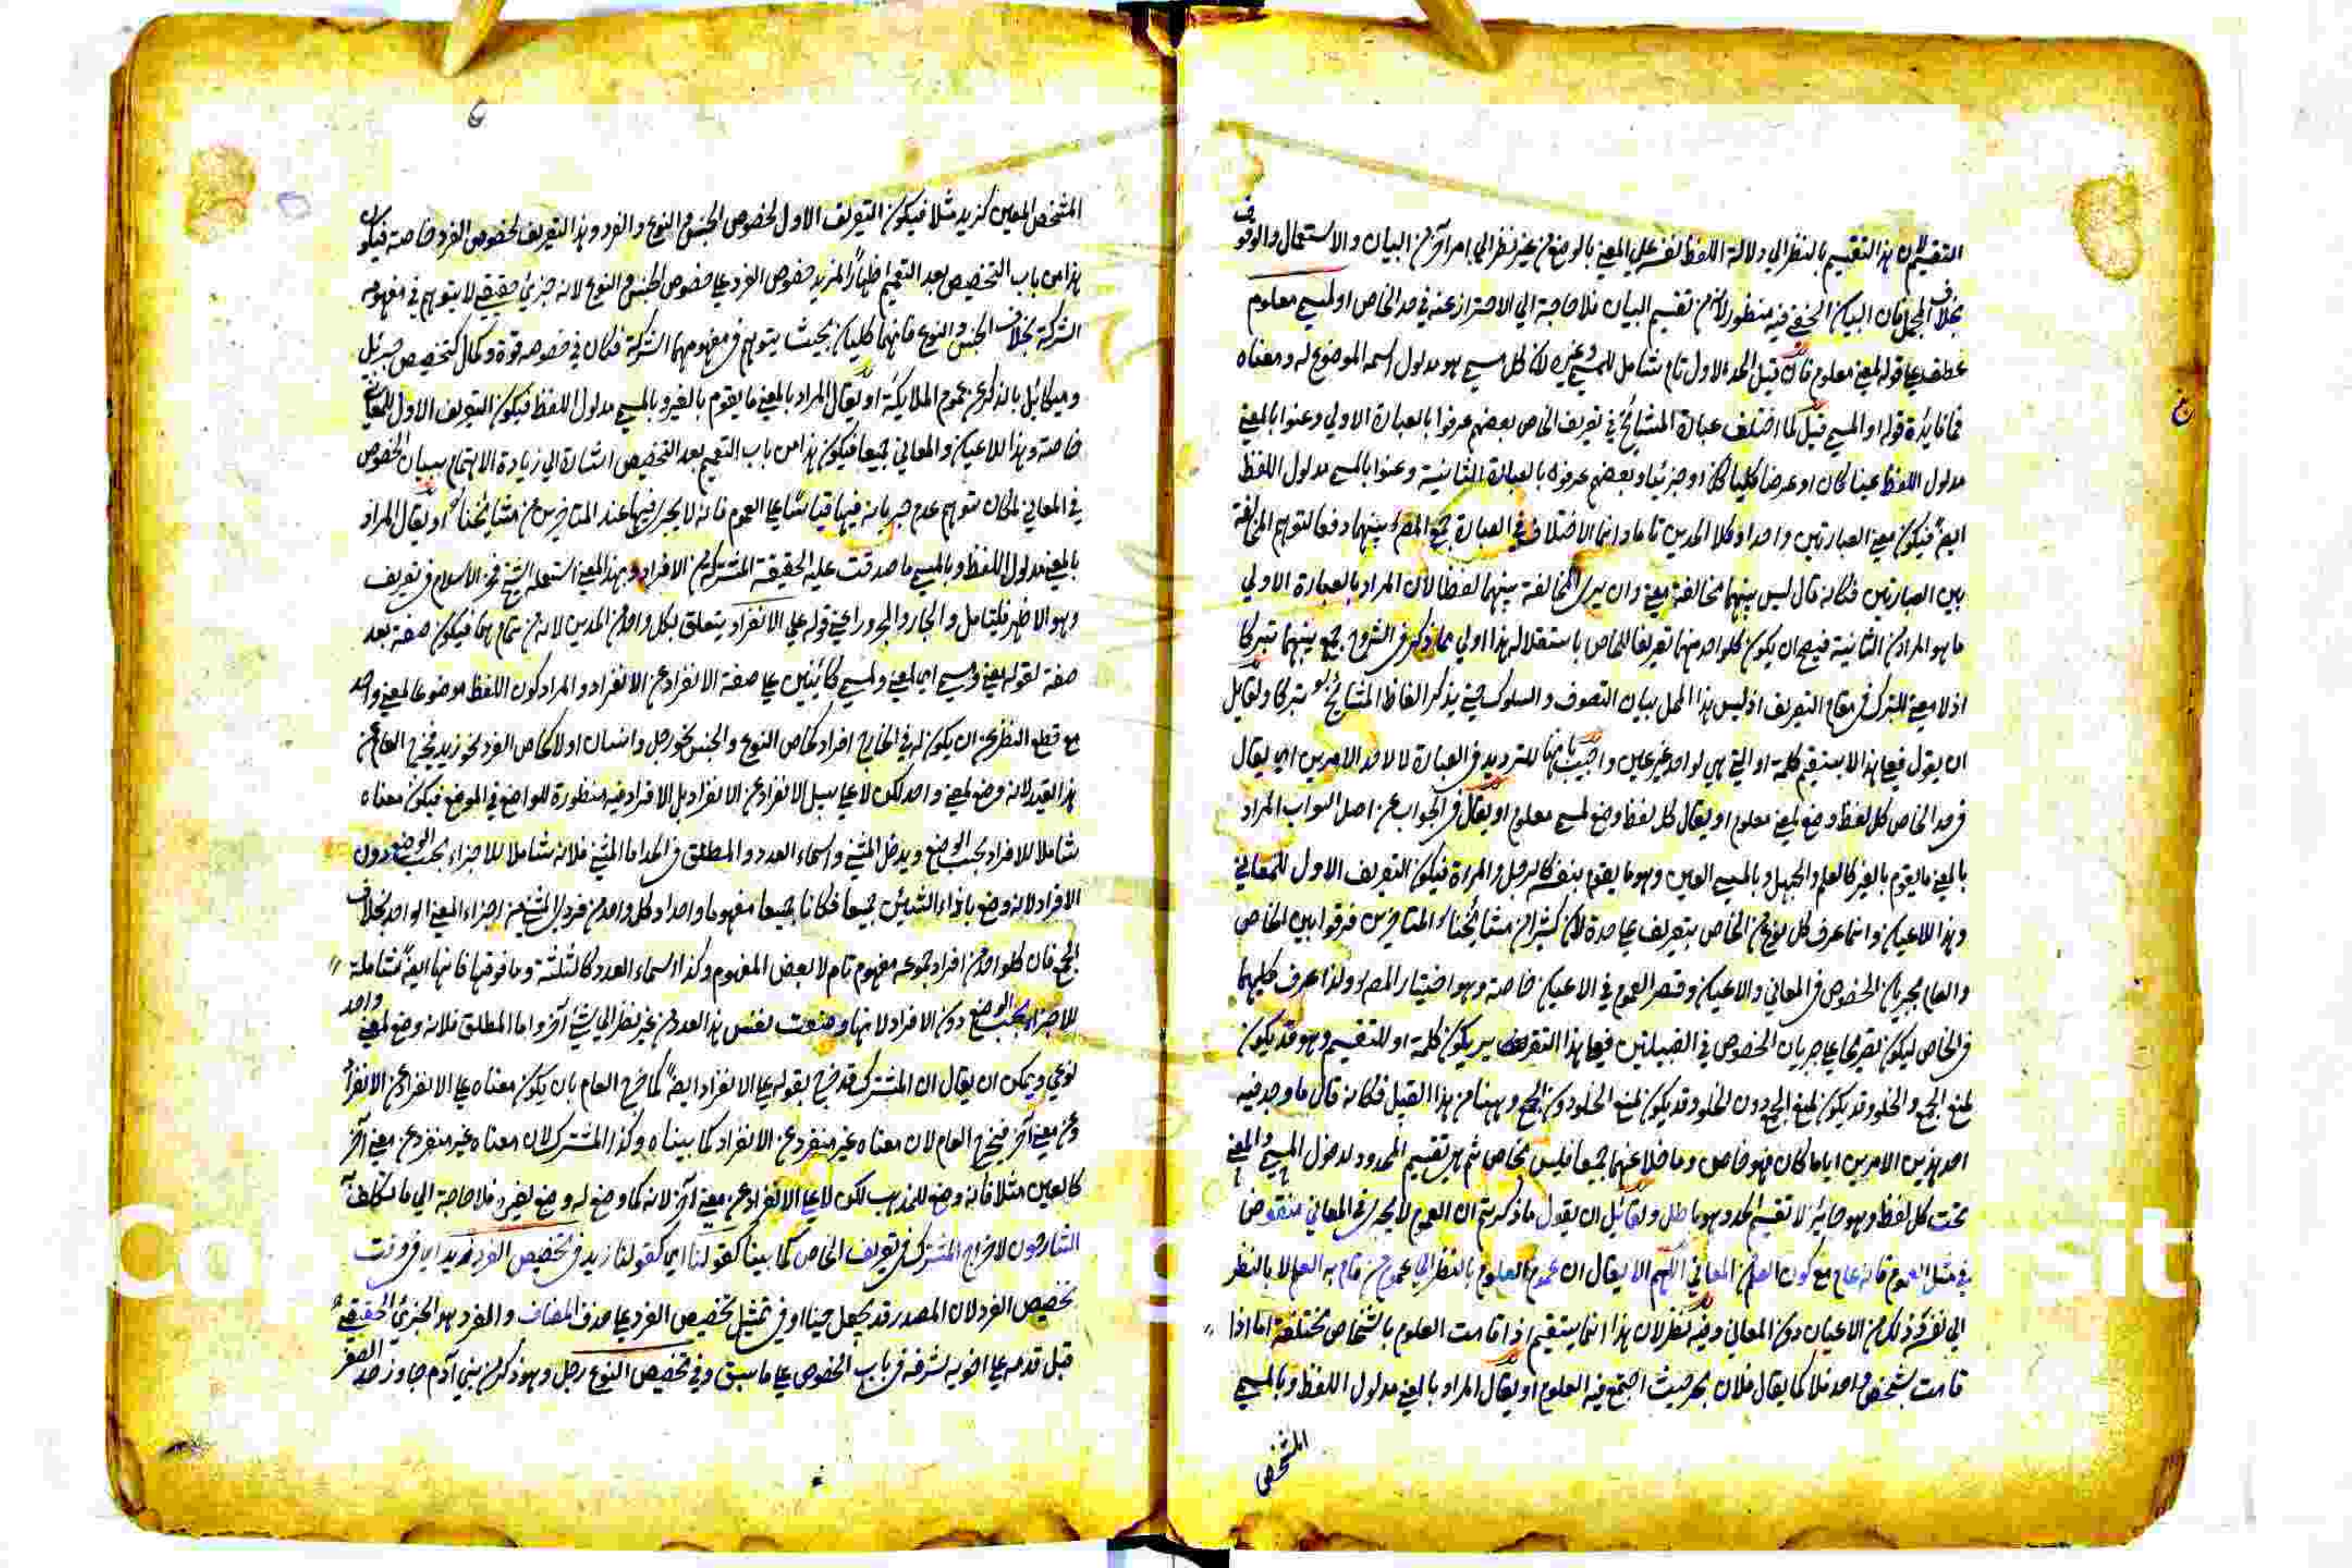 التقسيم لان هذا التقسيم بالنظر الي دلالة اللفظ نفسه علي المعني بالوضع من غير نظر الي امر آخر من البيان والاستعمال والوقوف
بخلاف المجمل فان البيان الخفي فيه منظور لانه من تقسيم البيان فلا حاجة الي الاحتراز عنه في حد الخاص او لمسمي معلوم
عطف علي قوله لمعني معلوم فان قيل الحد الاول تام شامل للمسمي وغيره لان كل مسمي هو مدلول اسمه الموضوع له ومعناه
فما فائدة قوله او لمسمي قيل لما اختلف عبارة المشائخ في تعريف الخاص بعضهم عرفوا بالعبارة الاولي وعنوا بالمعني
مدلول اللفظ عينا كان او عرضا كليا كان او جزئيا وبعضهم عرفوه بالعبارة الثانية وعنوا بالمسمي مدلول اللفظ
ايضً فيكون معني العبارتين واحدا وكلا الحدين تاما وانما الاختلاف في العبارة جمع المصـ بينهما دفعا لتوهم المخالفة
بين العبارتين فكانه قال ليس بينهما مخالفة معني وان يري المخالفة بينهما لفظا لان المراد بالعبارة الاولي
ما هو المراد من الثانية فيصح ان يكون كل واحد منهما تعريفا للخاص باستقلاله هذا اولي مما ذكر في الشروح جمع بينهما تبركا
اذ لا معني للتبرك في مقام التعريف اذ ليس هذا المحل بيان التصوف والسلوك حتي يذكر الفاظ المشائخ تبركا ولقائل
ان يقول فعلي هذا لا يستقيم كلمة او التي هي لواحد غير عين واجيب بانها للترديد في العبارة لا لاحد الامرين اي يقال
في حد الخاص كل لفظ وضع لمعني معلوم او يقال كل لفظ وضع لمسمي معلوم او يقال في الجواب عن اصل السوال المراد
بالمعني ما يقوم بالغير كالعلم والجهل وبالمسمي العين وهو ما يقوم بنفسه كالرجل والمراة فيكون التعريف الاول للمعاني
وهذا للاعيان وانما عرف كل نوع من الخاص بتعريف علي حدة لان كثيرا من مشايخنا المتاخرين فرقوا بين الخاص
والعام بجريان الخصوص في المعاني والاعيان وقصر العموم في الاعيان خاصة وهو اختيار المصـ ولذا عرف كليهما
في الخاص ليكون تصريحا علي جريان الخصوص في القبيلتين فعلي هذا التقرير يكون كلمة او للتقسيم وهو قد يكون
لمنع الجمع والخلو وقد يكون لمنع الجمع دون الخلو وقد يكون لمنع الخلو دون الجمع وههنا من هذا القبيل فكانه قال ما وجد فيه
احد هذين الامرين ايا ما كان فهو خاص وما خلا عنهما جميعا فليس بخاص ثم هو تقسيم المحدود لدخول المسمي والمعني
تحت كل لفظ وهو جائز لا تقسيم الحد وهو باطل ولقائل ان يقول ما ذكرتم ان العموم لا يجري في المعاني منقوض
في مثل العلوم فانه عام مع كون العلم من المعاني اللهم الا يقال ان عموم العلوم بالنظر الي عموم من قام به العلم لا بالنظر
الي نفسه فذلك من الاعيان دون المعاني وفيه نظر لان هذا انما يستقيم اذا قامت العلوم باشخاص مختلفة اما اذا
قامت بشخص واحد فلا كما يقال فلان بحر حيث اجتمع فيه العلوم او يقال المراد بالمعني مدلول اللفظ وبالمسمي
المشخص
المشخص المعين كزيد مثلا فيكون التعريف الاول لخصوص الجنس والنوع والفرد وهذا التعريف لخصوص الفرد خاصة فيكون
هذا من باب التخصيص بعد التعميم اظهارًا لمزيد خصوص الفرد علي خصوص الجنس والنوع لانه جزئي حقيقي لا يتوهم في مفهومه
الشركة بخلاف الجنس والنوع فانهما كليان بحيث يتوهم في مفهومهما الشركة فكان في خصوصه قوة وكمال كتخصيص جبرئيل
وميكائيل بالذكر عن عموم الملايكة او يقال المراد بالمعني ما يقوم بالغير وبالمسمي مدلول اللفظ فيكون التعريف الاول للمعاني
خاصة وهذا للاعيان والمعاني جميعا فيكون هذا من باب التعميم بعد التخصيص اشارة الي زيادة الاهتمام ببيان الخصوص
في المعاني لمكان توهم عدم جريانه فيها قياسًا علي العموم فانه لا يجري فيها عند المتاخرين من مشائخنا او يقال المراد
بالمعني مدلول اللفظ وبالمسمي ما صدقت عليه الحقيقة المشتركة من الافراد وبهذا المعني استعمله الشيخ فخر الاسلام في تعريف
وهو الاظهر فليتامل والجار والمجرور اعني قوله علي الانفراد يتعلق بكل واحد من الحدين لانه من تمامهما فيكون صفة بعد
صفة لقوله لمعني ومسمي اي لمعني ولمسمي كائنين علي صفة الانفراد عن الافراد والمراد كون اللفظ موضوعا لمعني واحد
مع قطع النظر عن ان يكون له في الخارج افراد كخاص النوع والجنس نحو رجل وانسان او لا كخاص الفرد نحو زيد فخرج العام عن
هذا القيد لانه وضع لمعني واحد لكن لا علي سبيل الانفراد عن الافراد بل الافراد فيه منظورة للواضع في الوضع فيكون معناه
شاملا للافراد بحسب الوضع ويدخل المثني واسماء العدد والمطلق في الحد اما المثني فلانه شاملا للاجزاء بحسب الوضع دون
الافراد لانه وضع بازاء الشيئين جميعا فكانا جميعا مفهوما واحدا وكل واحد من فردي المثني من اجزاء المعني الواحد بخلاف
الجمع فان كل واحد من افراد مجموعه مفهوم تام لا بعض المفهوم وكذا اسماء العدد كالثلثة وما فوقها فانها ايضً شاملة
للاجزاء بحسب الوضع دون الافراد لانها وضعت لنفس هذا العدد من غير نظر الي شي آخر واما المطلق فلانه وضع لمعني واحد
نوعي ويمكن ان يقال ان المشترك قد خرج بقوله علي الانفراد ايضً كما خرج العام بان يكون معناه علي الانفراد عن الافراد
وعن معني آخر فيخرج العام لان معناه غير منفرد عن الافراد كما بيناه وكذا المشترك لان معناه غير منفرد عن معني آخر
كالعين مثلا فانه وضع للذهب لكن لا علي الانفراد عن معني آخر لانه كما وضع له وضع لغيره فلا حاجة الي ما تكلف
الشارحون لاخراج المشترك في تعريف الخاص كما بينا كقولنا اي كقولنا زيد في تخصيص الفرد
تخصيص الفرد لان المصدر قد يجعل حينا او في تمثيل تخصيص الفرد علي حذف المضاف والفرد هو الجزئي الحقيقي
قبل قدمه علي اخويه لشرفه في باب الخصوص علي ما سبق وفي تخصيص النوع رجل وهو ذكر من بني آدم جاوز حد الصغر